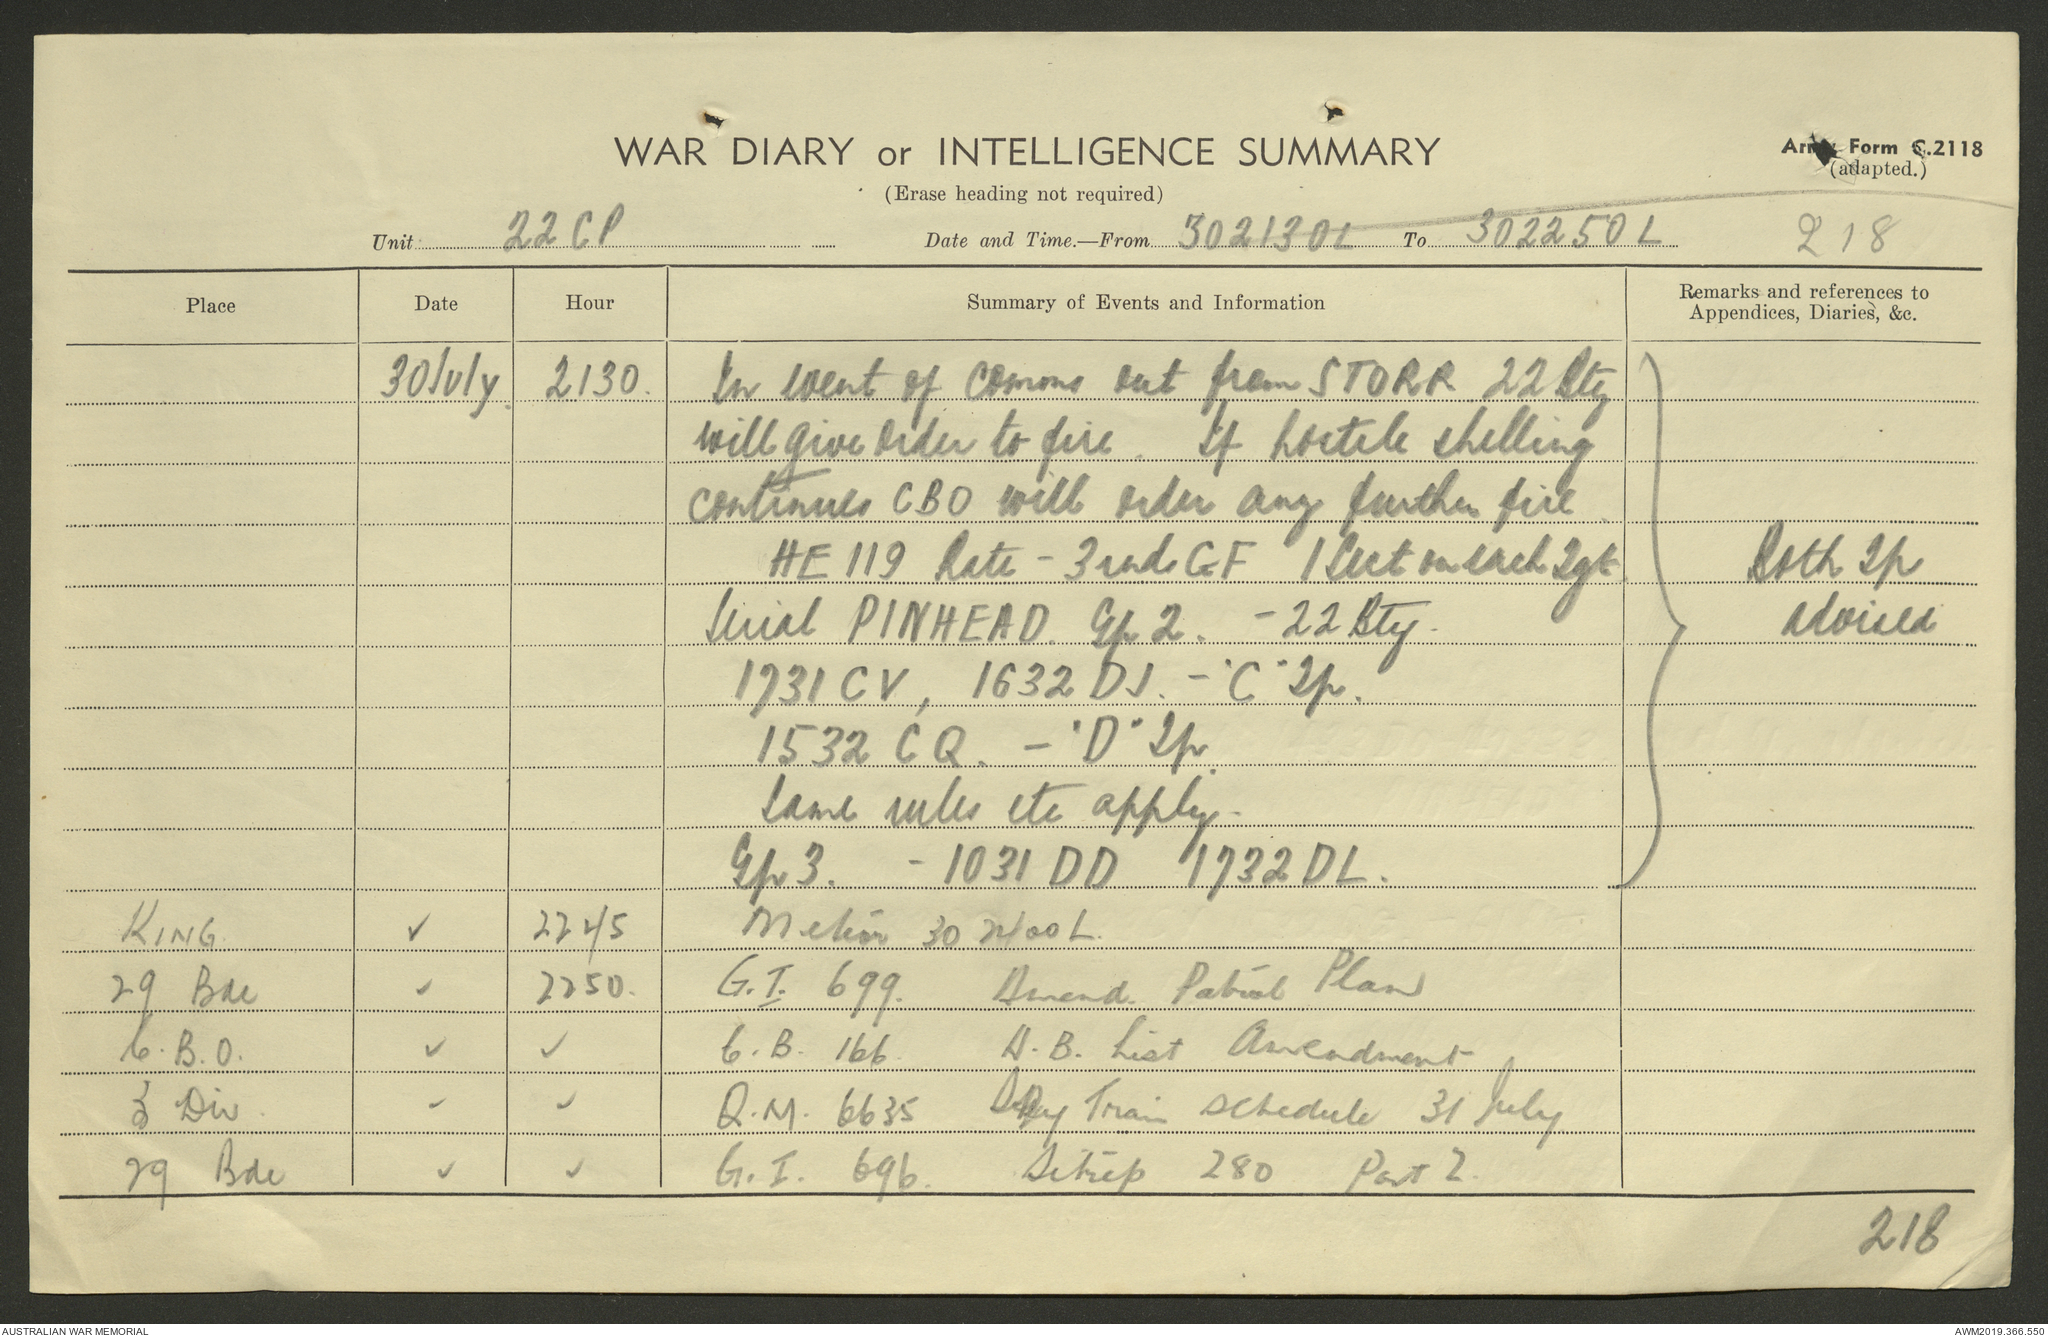 WAR DIARY or INTELLIGENCE SUMMARY
Army Form C.2118
(adapted.)
(Erase heading not required)
Unit 22 CP Date and Time.—From 302130L To 302250L 218
Place Date Hour Summary of Events and Information Remarks and references to Appendices, Diaries, &c.
30 July. 2130. In event of comms out from STORR 22 Bty
will give order to fire. If hostile shelling
continues CBO will order any further fire.
HE 119 Rate - 3 rnds GF 1 Sect on each Tgt. Both Tp
Serial PINHEAD. Gp 2. - 22 Bty. advised
1731 CV, 1632 DJ. - "C" Tp.
1532 CQ. - "D" Tp.
Same rules etc apply.
Gp 3. - 1031 DD 1732 DL.
KING ✓ 2245 Meteor 30 2400L.
29 Bde ✓ 2250. G.I. 699. Amend. Patrol Plan
C.B.O. ✓ ✓ G.B. 166. H.B. List Amendment
3 Div. ✓ ✓ Q.M. 6635 Train Schedule 31 July
29 Bde ✓ ✓ G.I. 696. Sitrep 280 Part 2.
218
AUSTRALIAN WAR MEMORIAL AWM2019.366.550